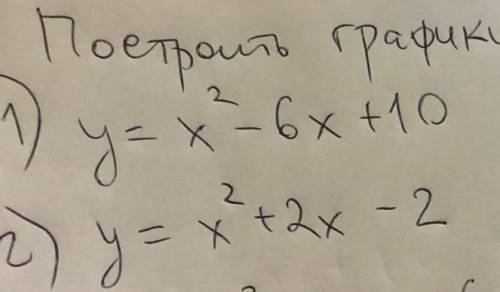 Построить графики
1) y = x² - 6x + 10
2) y = x² + 2x - 2